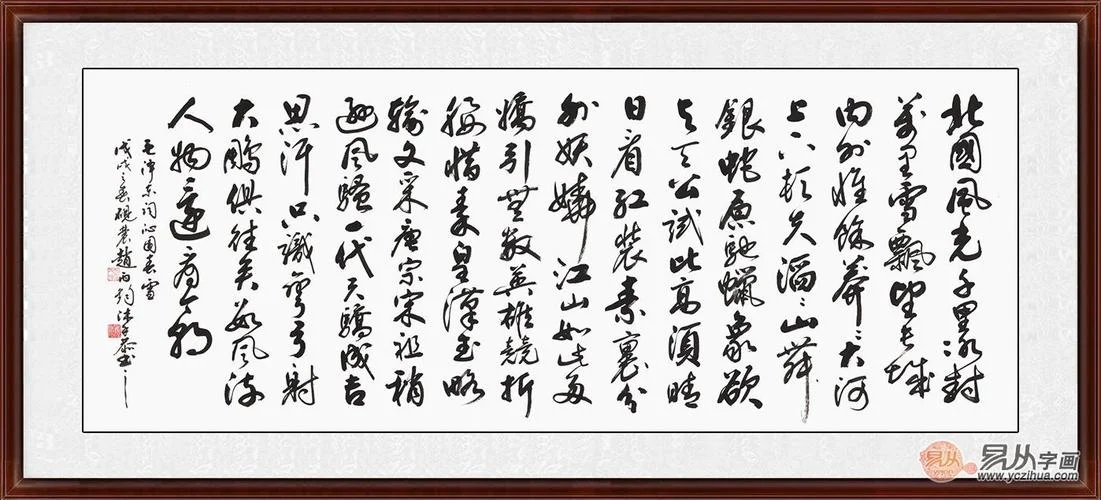 北國風光千里冰封
萬里雪飄望長城
内外惟餘莽〻大河
上下頓失滔〻山舞
銀蛇原馳蠟象欲
與天公試比高須晴
日看紅裝素裹分
外妖嬈江山如此多
嬌引無數英雄競折
腰惜秦皇漢武略
輸文采唐宗宋祖稍
遜風騷一代天驕成吉
思汗只識彎弓射
大鵰俱往矣數風流
人物還看今朝
毛澤東詞沁園春雪
戊戌之春硯農趙恭書
易从
易从字画
www.yczihua.com